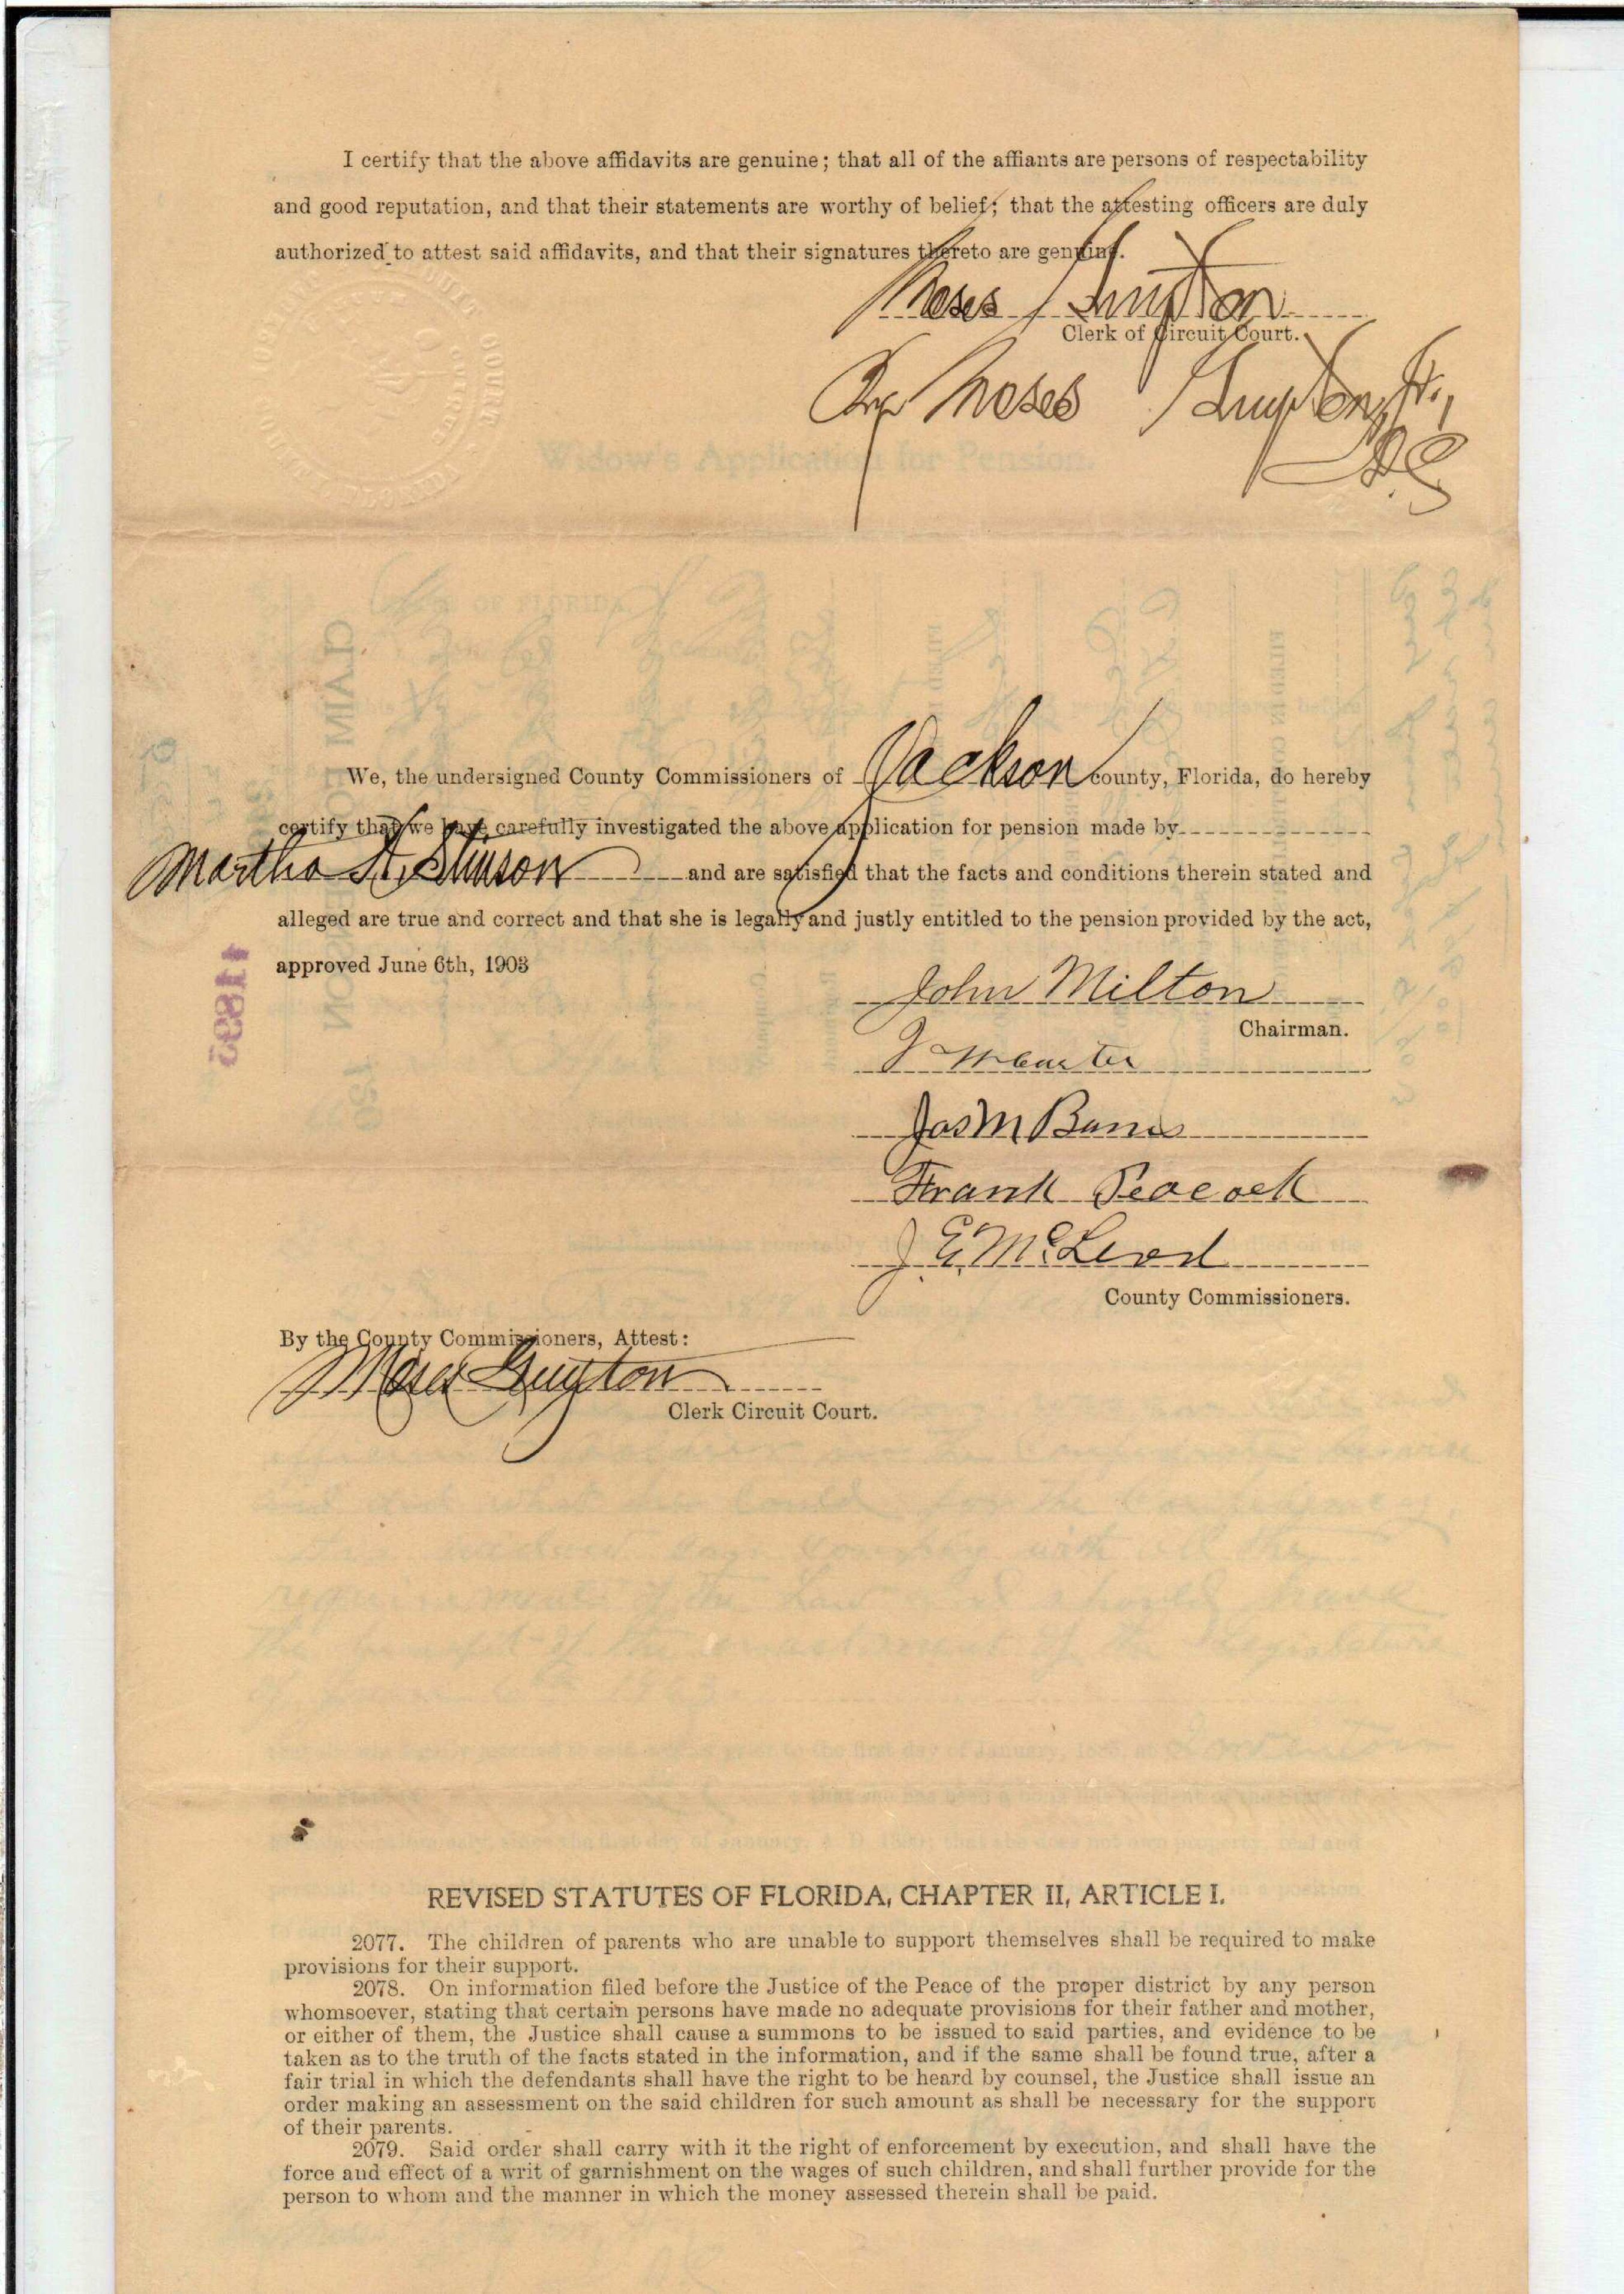 I certify that the above affidavits are genuine; that all of the affiants are persons of respectability
and good reputation, and that their statements are worthy of belief; that the attesting officers are duly
authorized to attest said affidavits, and that their signatures thereto are genuine.
Moses Guyton
Clerk of Circuit Court.
Per Moses Guyton, Jr.,
D.C.
Widow's Application for Pension.
We, the undersigned County Commissioners of Jackson county, Florida, do hereby
certify that we have carefully investigated the above application for pension made by
Martha A. Stinson and are satisfied that the facts and conditions therein stated and
alleged are true and correct and that she is legally and justly entitled to the pension provided by the act,
approved June 6th, 1903
John Milton
Chairman.
J W Carter
Jas M Barnes
Frank Peacock
J. E. McLeod
County Commissioners.
By the County Commissioners, Attest:
Moses Guyton
Clerk Circuit Court.
REVISED STATUTES OF FLORIDA, CHAPTER II, ARTICLE I.
2077. The children of parents who are unable to support themselves shall be required to make
provisions for their support.
2078. On information filed before the Justice of the Peace of the proper district by any person
whomsoever, stating that certain persons have made no adequate provisions for their father and mother,
or either of them, the Justice shall cause a summons to be issued to said parties, and evidence to be
taken as to the truth of the facts stated in the information, and if the same shall be found true, after a
fair trial in which the defendants shall have the right to be heard by counsel, the Justice shall issue an
order making an assessment on the said children for such amount as shall be necessary for the support
of their parents.
2079. Said order shall carry with it the right of enforcement by execution, and shall have the
force and effect of a writ of garnishment on the wages of such children, and shall further provide for the
person to whom and the manner in which the money assessed therein shall be paid.